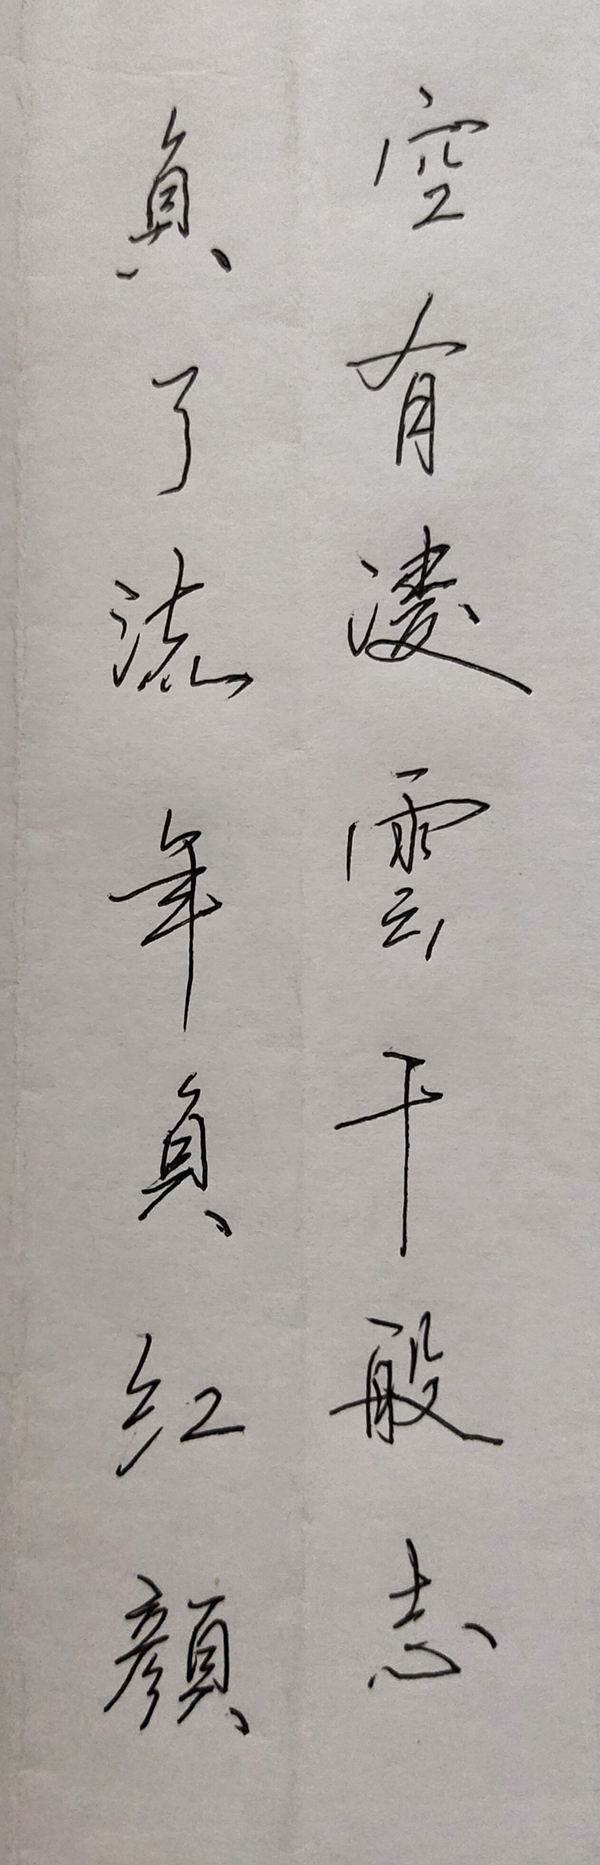 空有凌雲千般志
負了流年負红顏